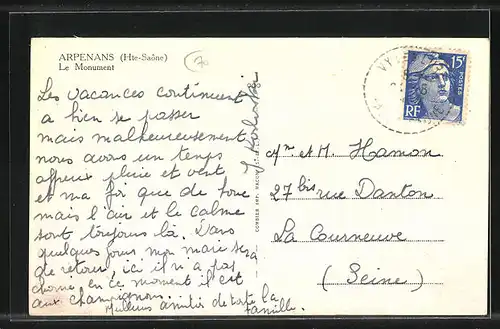 ARPENANS (Hte-Saône)
Le Monument
70
Les vacances continuent
à bien se passer
mais malheureusement
nous avons un temps
affreux pluie et vent
et ma foi que de boue
mais l'air et le calme
sont toujours là. Dans
quelques jours mon mari sera
de retour, ici il n'a pas
chomé en ce moment il est
aux champignons.
Meilleures amitiés de toute la
famille.
15F
POSTES
RF
Mme et M. Hamon
27 bis rue Danton
La Courneuve
(Seine)